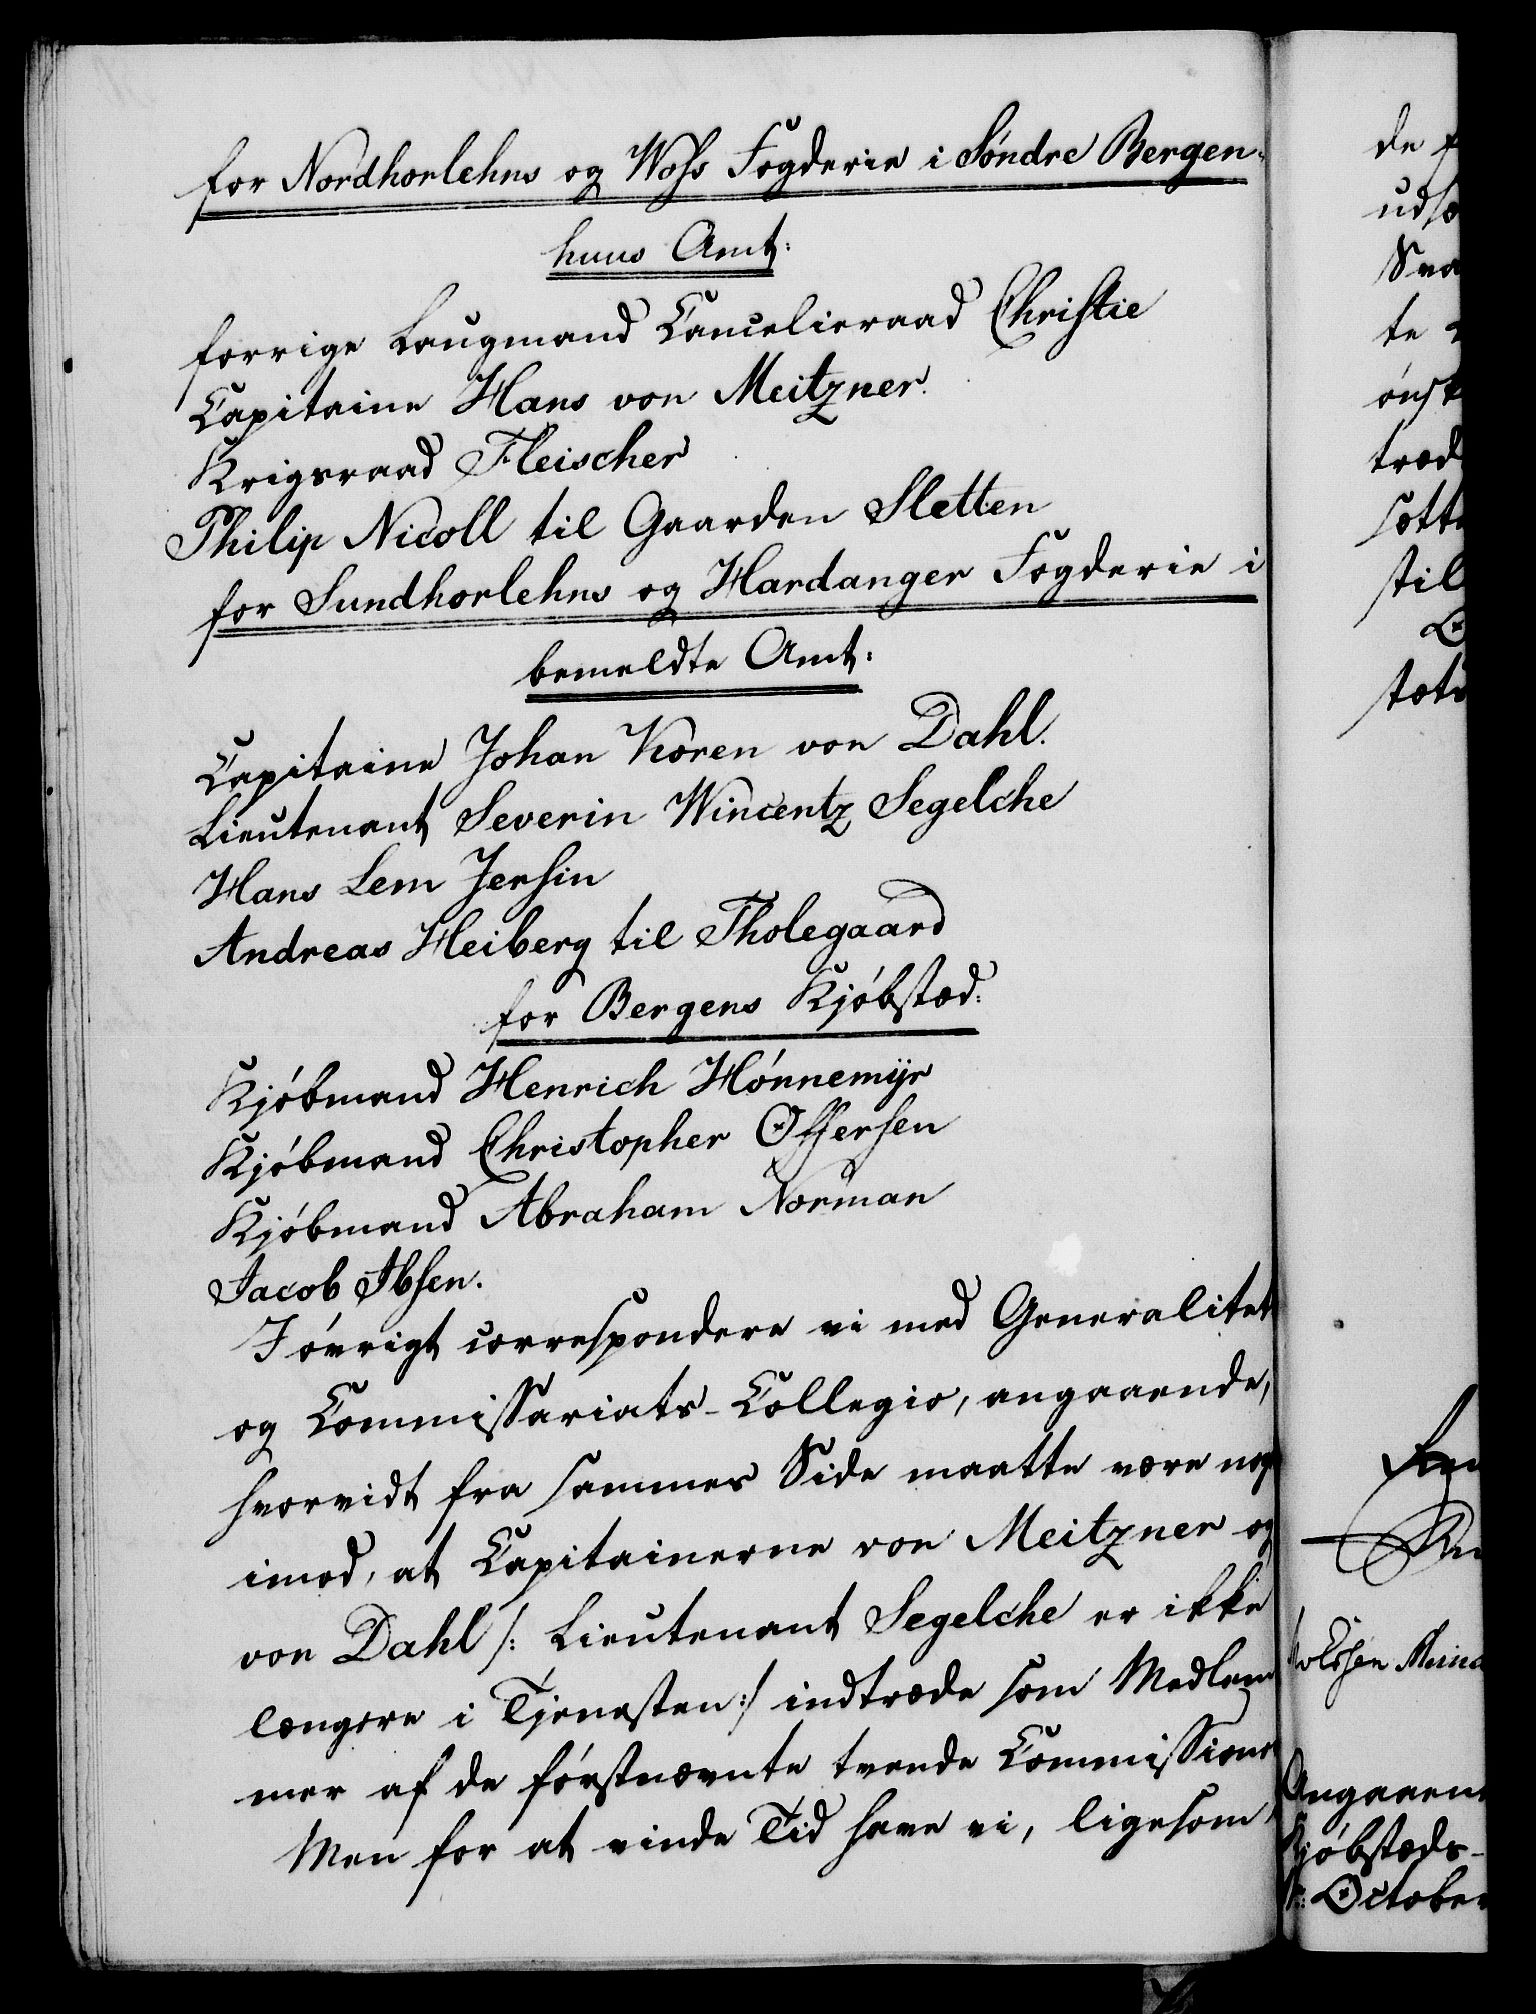 for Nordhorlehns og Woss Fogderie i Søndre Bergen-
huus Amt:
forrige Laugmand Cancelieraad Christie
Capitaine Hans von Meitzner.
Krigsraad Fleischer
Philip Nicoll til Gaarden Sletten
for Sundhorlehns og Hardanger Fogderie i
bemeldte Amt:
Capitaine Johan Koren von Dahl.
Lieutenant Severin Wincentz Segelche
Hans Lem Jersin
Andreas Heiberg til Tholegaard
for Bergens Kjøbstæd:
Kjøbmand Henrich Hønnemÿr
Kjøbmand Christopher Offersen
Kjøbmand Abraham Norman
Jacob Ibsen.
I øvrigt correspondere vi med Generalitet
og Commissariats-Collegio, angaaende,
hvorvidt fra sammes Side maatte være nog
imod, at Capitainerne von Meitzner og
von Dahl /: Lieutenant Segelche er ikke
længere i Tjenesten :/ indtræde som Medlem
mer af de førstnævnte tvende Commissione
Men for at vinde Tid have vi, ligesom
de
udsæ
Sva
te
ønsk
træd
sætte
stil
stæts
Angaaen
Kjøbstæds-
October